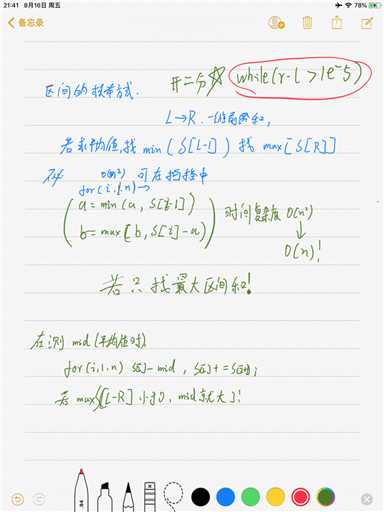 21:41 8月16日 周五
78%
备忘录
开二分☆ while(r-l>1e-5)
区间的枚举方式.
L→R.
若求均值,找 min(S[L-1]) 找 max[S[R]]
O(n²) 可在扫描中
for(i,1,n)→
a=min(a, S[i-1])
b=max[b, S[i]-a)
时间复杂度 O(n²)
↓
O(n)!
若只找最大区间和!
在测 mid(平均值时)
for(i,1,n) S[i]-mid, S[i]+=S[i-1];
若 max[L-R] 小于0, mid就大了!